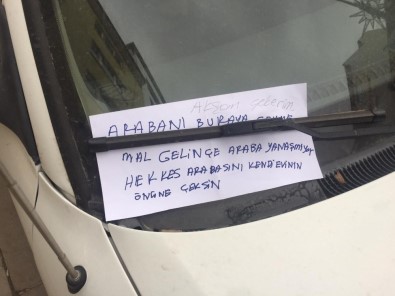 ARABANI BURAYA
MAL GELİNÇE ARABA YANAŞMIYOR
HEKKES ARABASINI KENDİ EVİNİN
ÖNÜNE ÇEKSİN